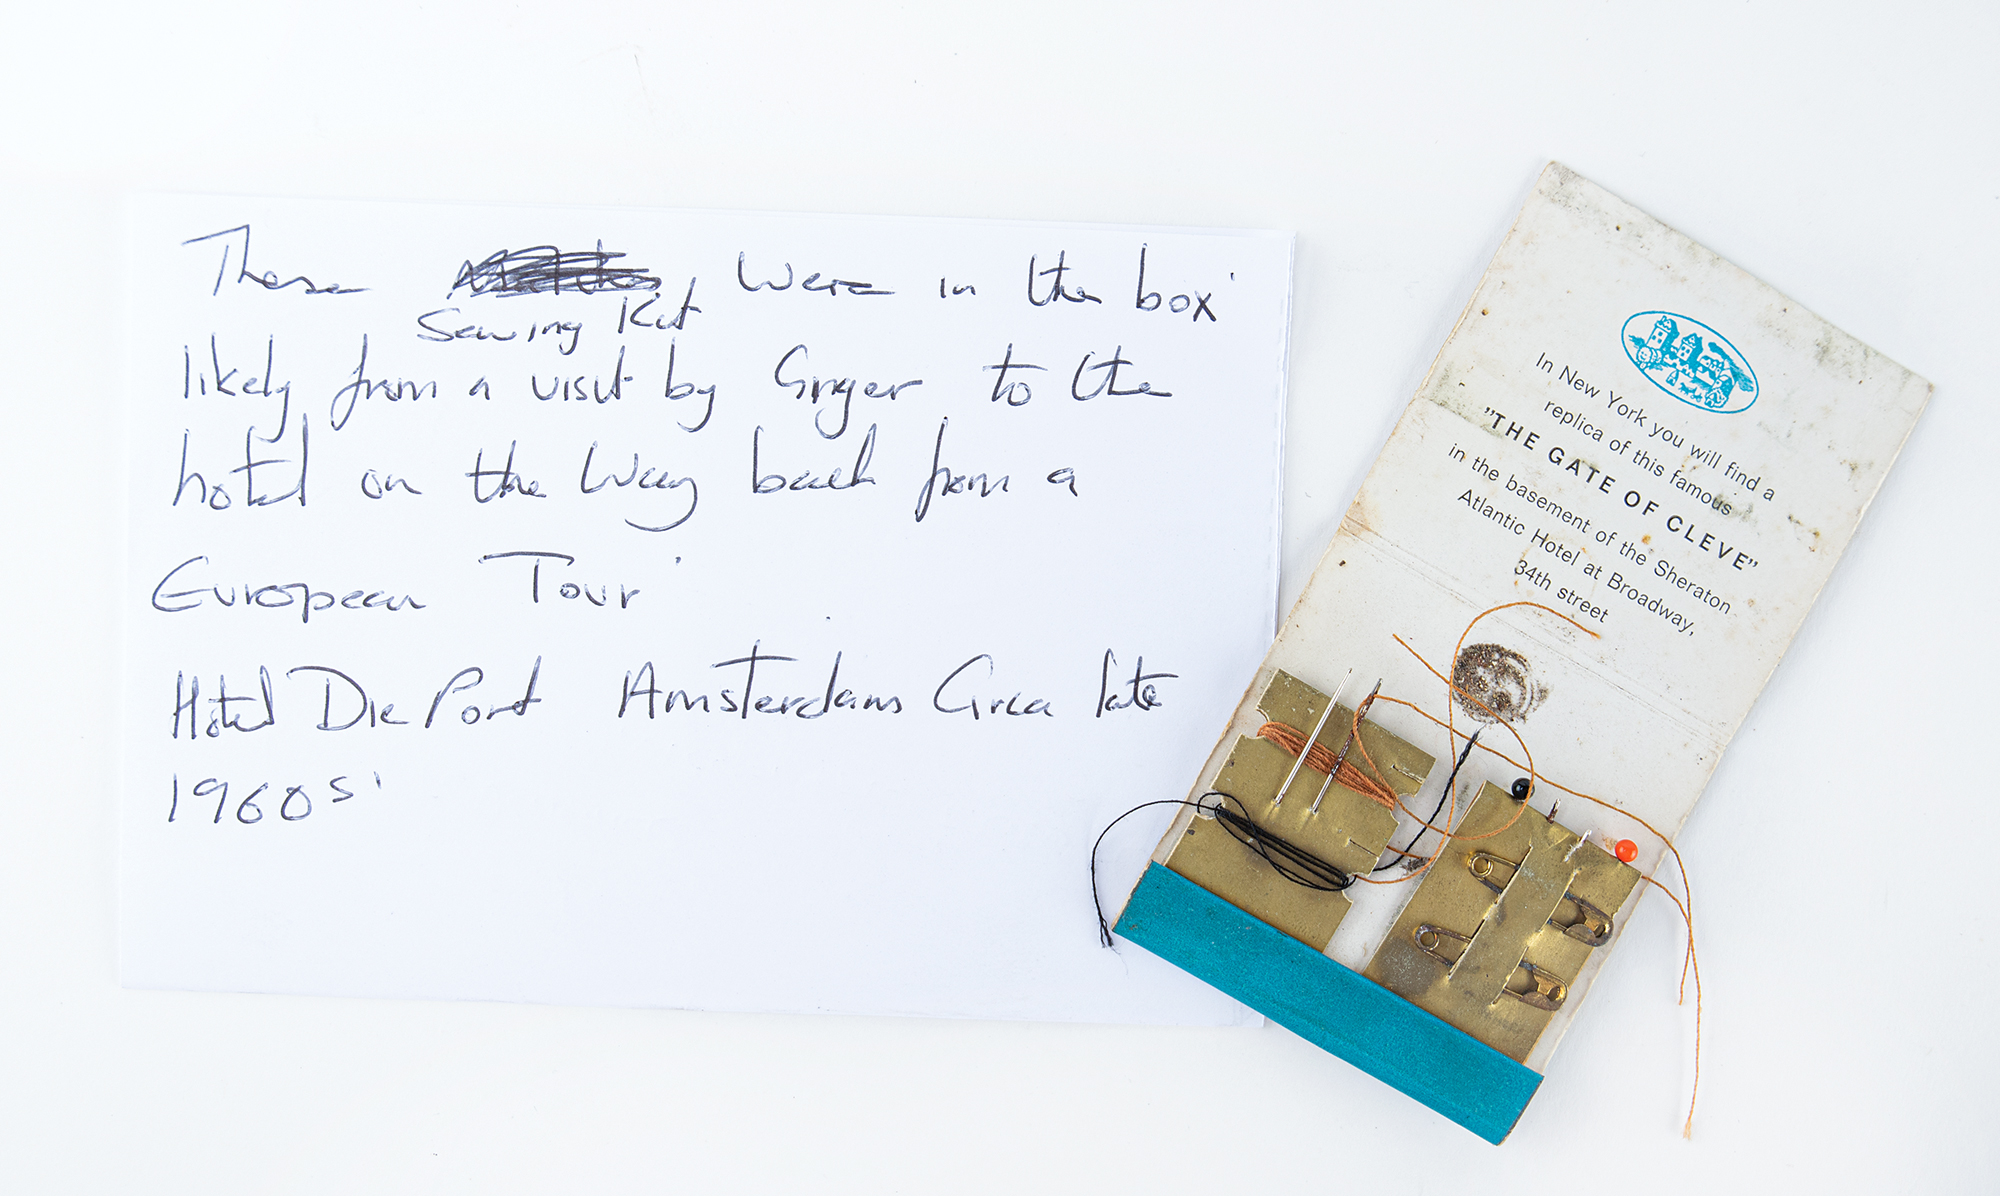 These were in the box
Sewing Kit
likely from a visit by Ginger to the
hotel on the Way back from a
European Tour
Hotel Die Port Amsterdam Circa late
1960s
In New York you will find a
replica of this famous
"THE GATE OF CLEVE"
in the basement of the Sheraton
Atlantic Hotel at Broadway,
34th street